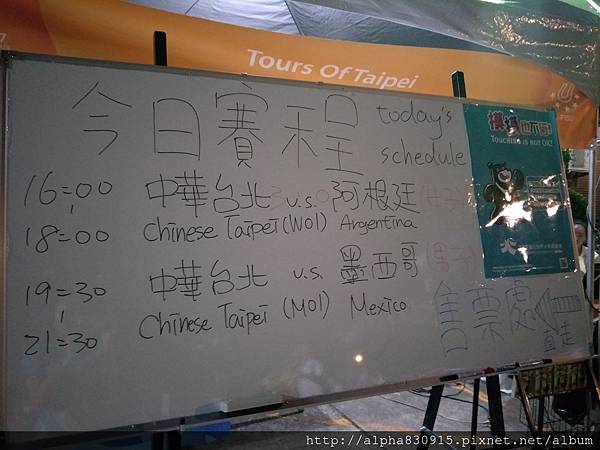 Tours Of Taipei
今日賽程 today's schedule
摸摸也不行!
TOUCHING IS NOT OK!
16:00
|
18:00
中華台北 v.s. 阿根廷 (女子)
Chinese Taipei (W01) Argentina
19:30
|
21:30
中華台北 v.s. 墨西哥 (男子)
Chinese Taipei (M01) Mexico
售票處
直走
http://alpha830915.pixnet.net/album